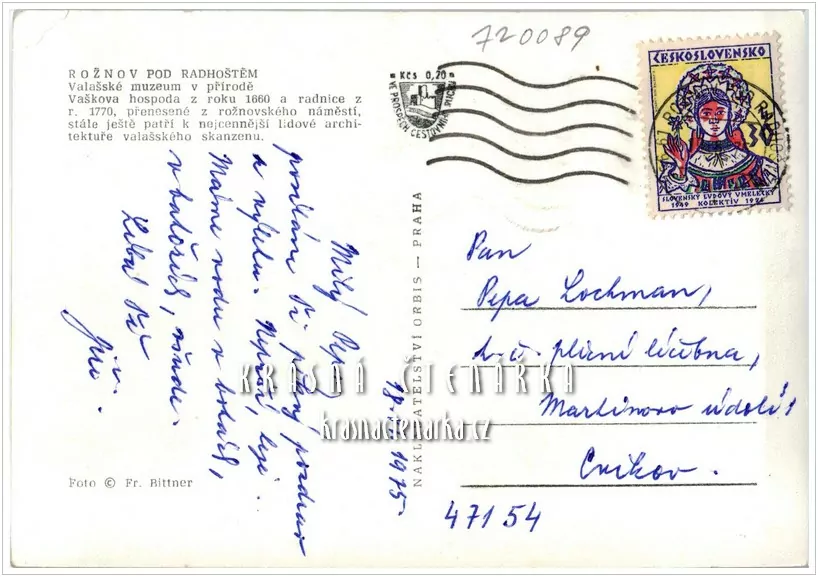 720089
ROŽNOV POD RADHOŠTĚM
Valašské muzeum v přírodě
Vaškova hospoda z roku 1660 a radnice z
r. 1770, přenesené z rožnovského náměstí,
stále ještě patří k nejcennější lidové archi-
tektuře valašského skanzenu.
Kčs 0,20
VE PROSPĚCH CESTOVNÍHO RUCHU
ČESKOSLOVENSKO
30
SLOVENSKÝ ĽUDOVÝ UMELECKÝ
1949 KOLEKTÍV 1974
18. 1975
Milý Pepo,
posílám Ti pěkný pozdrav
z výletu. Neprší, leje.
Máme vodu v botách,
v batozích, všude.
Líbá Tě
Jiří.
NAKLADATELSTVÍ ORBIS — PRAHA
Pan
Pepa Lochman,
plicní léčebna,
Martinovo údolí
Cvikov.
471 54
KRÁSNÁ ČTENÁŘKA
krasnactenarka.cz
Foto © Fr. Bittner